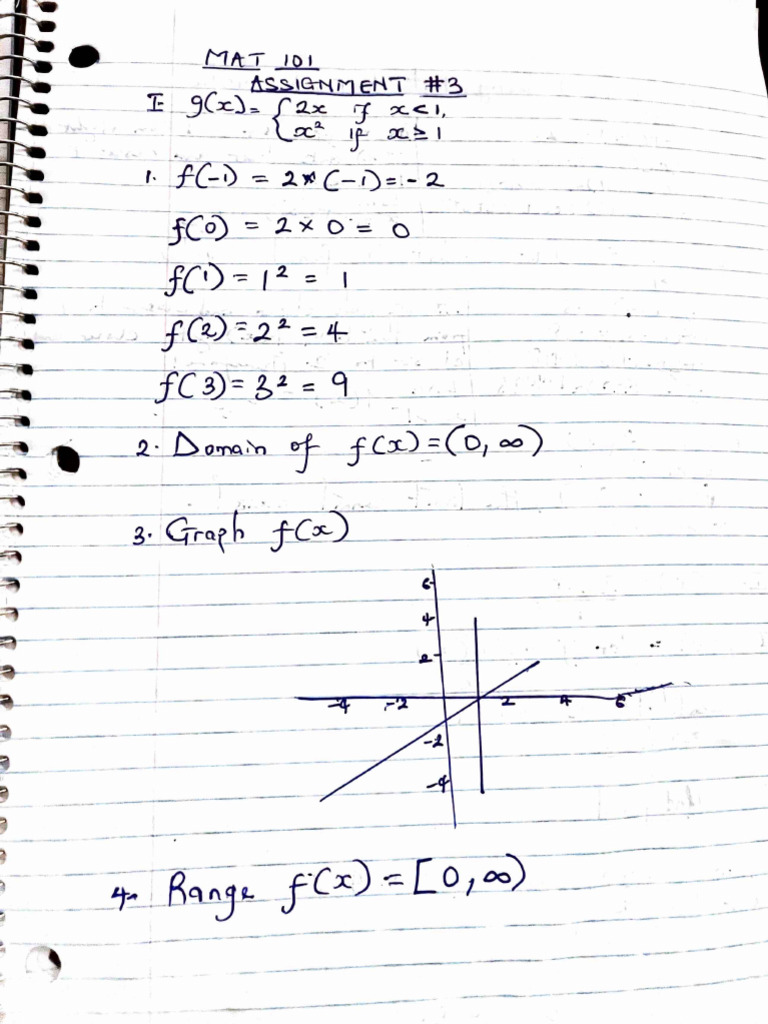 MAT 101
ASSIGNMENT #3
I- g(x) = { 2x if x < 1,
{ x² if x ≥ 1
1. f(-1) = 2 × (-1) = -2
f(0) = 2 × 0 = 0
f(1) = 1² = 1
f(2) = 2² = 4
f(3) = 3² = 9
2. Domain of f(x) = (0, ∞)
3. Graph f(x)
6
4
2
-4 -2 2 4 6
-2
-4
4. Range f(x) = [0, ∞)